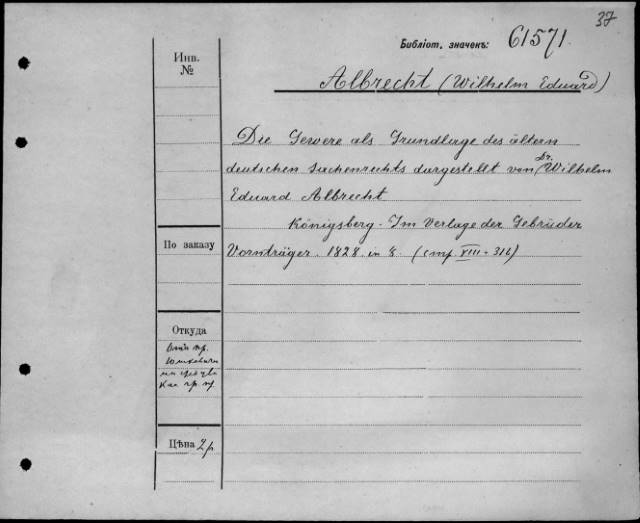 37
Библіот. значекъ: 61571.
Инв.
№
Albrecht (Wilhelm Eduard)
Die Gewere als Grundlage des ältern
deutschen Sachenrechts dargestellt von Dr. Wilhelm
Eduard Albrecht
Königsberg. Im Verlage der Gebrüder
Bornträger. 1828. in 8. (стр. VIII + 316)
По заказу
Откуда
пр.
Юшкевича
Каг. гр. пр.
Цѣна 2 р